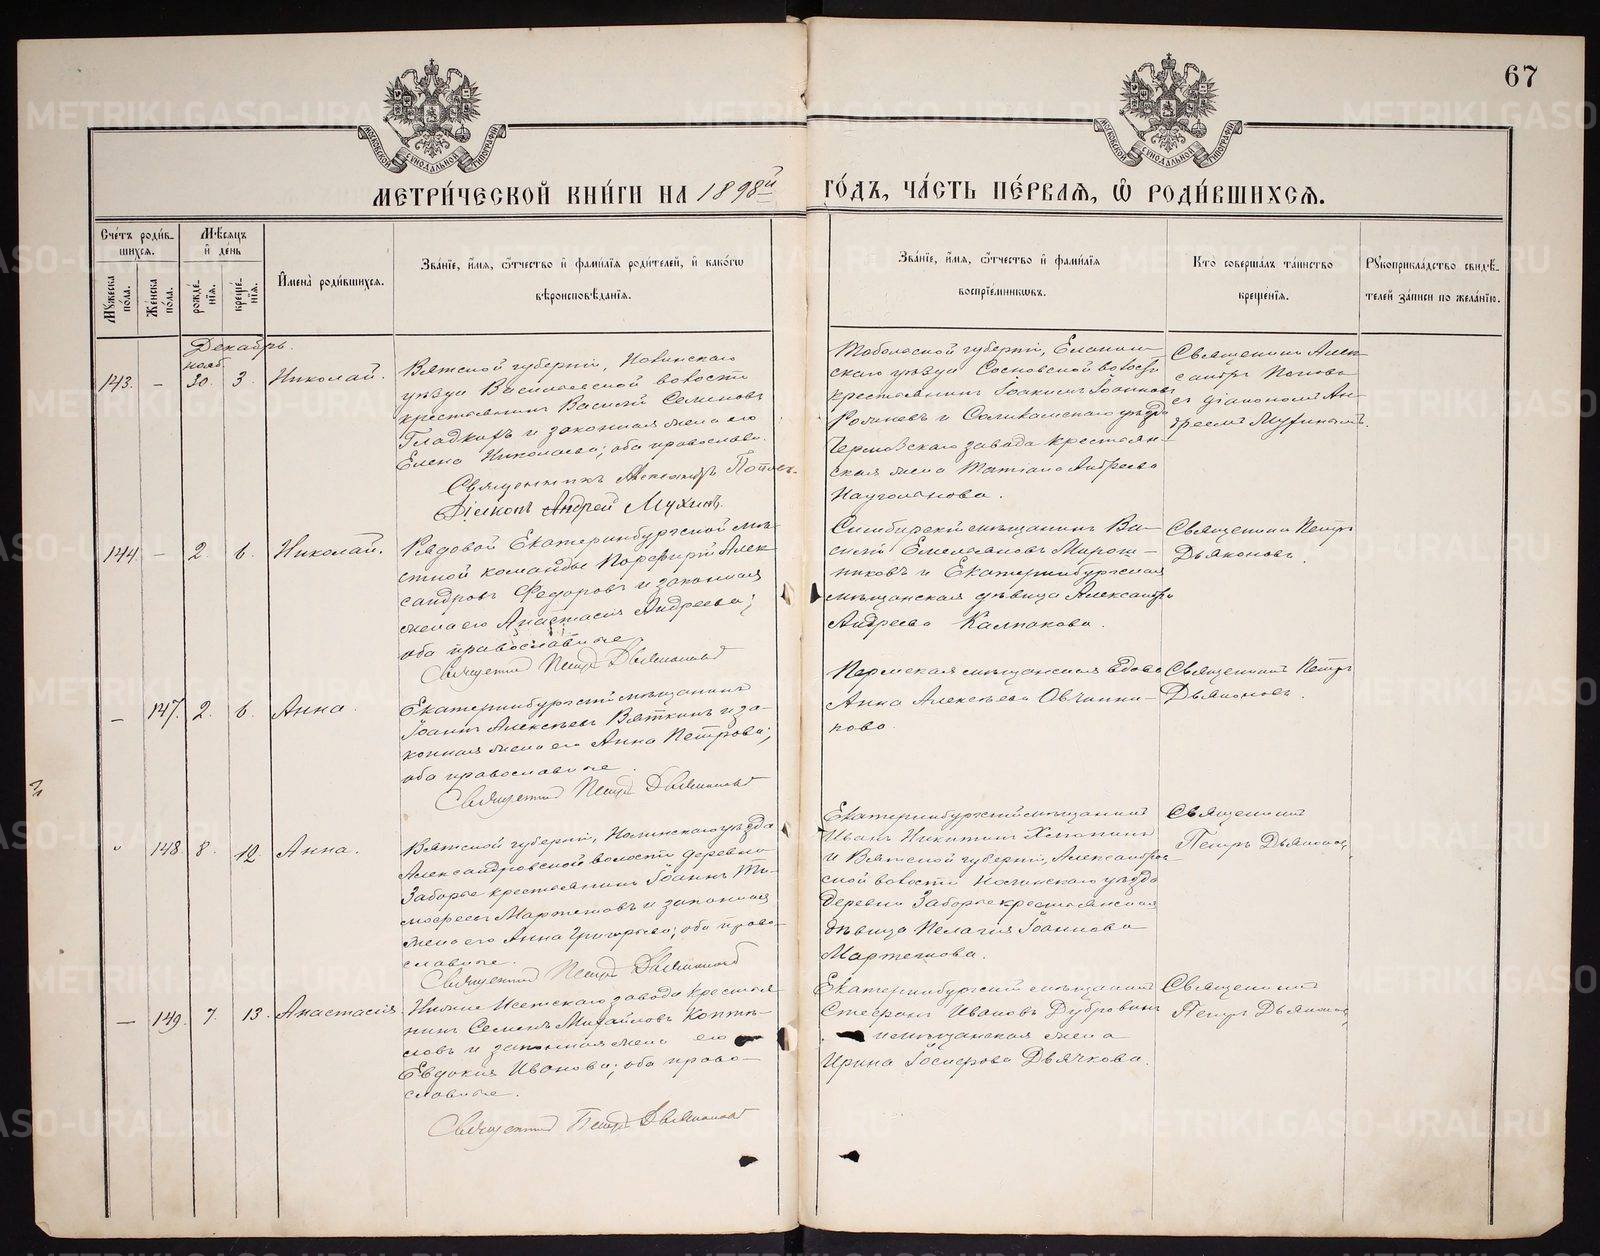 67
МЕТРИ́ЧЕСКОЙ КНИ́ГИ НА 1898й ГО́ДЪ, ЧА́СТЬ ПЕ́РВАѦ, Ѿ РОДИ́ВШИХСѦ.
Сче́тъ роди́вшихсѧ.
Мꙋ́жеска по́ла.
Же́нска по́ла.
Мѣ́сѧцъ и҆ де́нь
рожде́нїѧ.
креще́нїѧ.
И҆мена̀ роди́вшихсѧ.
Зва́нїе, и҆́мѧ, ѻ҆́тчество и҆ фами́лїѧ роди́телей, и҆ како́гѡ
вѣроисповѣ́данїѧ.
Зва́нїе, и҆́мѧ, ѻ҆́тчество и҆ фами́лїѧ
воспрїе́мникѡвъ.
Кто̀ соверша́лъ та́инство
креще́нїѧ.
Рꙋкоприкла́дство свидѣ́-
телей за́писи по жела́нїю.
Декабрь.
143. – нояб. 30. 3. Николай.
Вятской губерніи,
уѣзда Василевской волости
крестьянинъ Василій Семеновъ
Гладкихъ и законная жена его
Елена Николаева; оба православн.
Священникъ Александръ Поповъ
Діаконъ Андрей Мухинъ.
Тобольской губерніи,
скаго уѣзда Сосновской волости
крестьянинъ Іоакимъ Іоанновъ
и Соликамскаго уѣзда
Чермозскаго завода крестьян-
ская жена Татіана Андреева
Священникъ Алек-
сандръ Поповъ
съ діакономъ Ан-
дреемъ Мухинымъ.
144. – 2. 6. Николай.
Рядовой Екатеринбургской мѣ-
стной команды Порфирій Алек-
сандровъ Федоровъ и законная
жена его Анастасія Андреева;
оба православные.
Священникъ Петръ Дьяконовъ
Симбирскій мѣщанинъ Ва-
силій Емельяновъ Мирош-
никовъ и Екатеринбургская
мѣщанская дѣвица Александра
Андреева Калпакова.
Священникъ Петръ
Дьяконовъ.
– 147. 2. 6. Анна.
Екатеринбургскій мѣщанинъ
Іоаннъ Алексѣевъ Вяткинъ и за-
конная жена его Анна Петрова;
оба православные.
Священникъ Петръ Дьяконовъ
Пермская мѣщанская вдова
Анна Алексѣева Овчинни-
кова.
Священникъ Петръ
Дьяконовъ.
148. 8. 12. Анна.
Вятской губерніи, Нолинскаго уѣзда
Александровской волости деревни
Заборье крестьянинъ Іоаннъ Ти-
мофеевъ Мартешовъ и законная
жена его Анна Григорьева; оба право-
славные.
Священникъ Петръ Дьяконовъ
Екатеринбургскій мѣщанинъ
Иванъ Никитинъ Хлопинъ
и Вятской губерніи, Александров-
ской волости Нолинскаго уѣзда
деревни Заборье крестьянская
дѣвица Пелагія Іоаннова
Мартешова.
Священникъ
Петръ Дьяконовъ.
– 149. 7. 13. Анастасія
Нижне Исетскаго завода крестья-
нинъ Семенъ Михайловъ Копты-
ловъ и законная жена его
Евдокия Иванова; оба право-
славные.
Священникъ Петръ Дьяконовъ
Екатеринбургскій мѣщанинъ
Стефанъ Ивановъ Дубровинъ
и мѣщанская жена
Ирина Іосифова Дьячкова.
Священникъ
Петръ Дьяконовъ.
METRIKI.GASO-URAL.RU